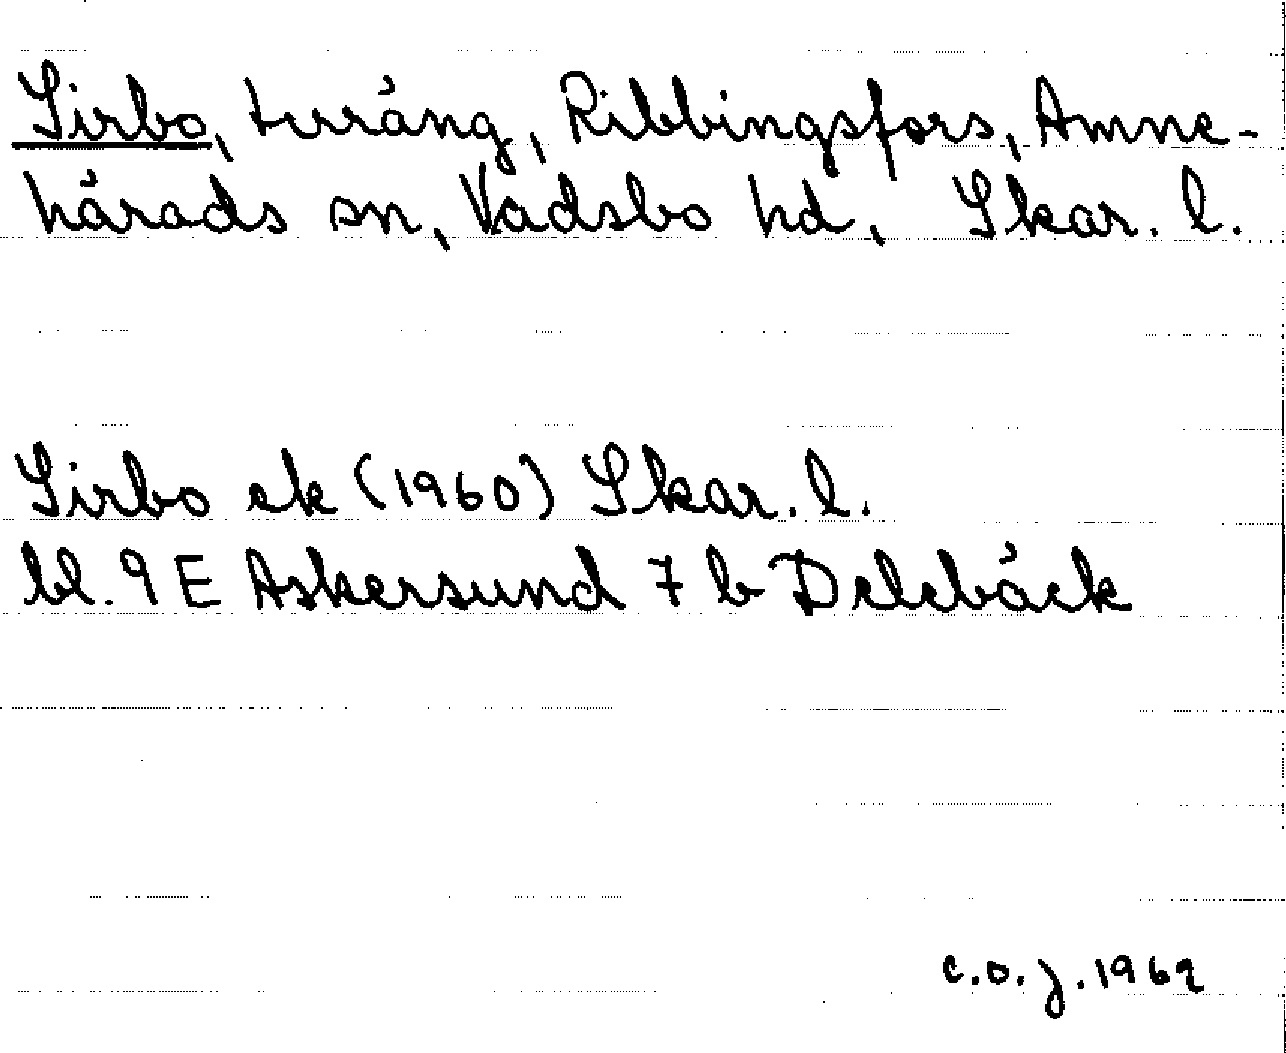 Sirbo, terräng, Ribbingsfors, Amne-
härads sn, Vadsbo hd, Skar. l.
Sirbo ek (1960) Skar. l.
bl. 9 E Askersund 7 b Delebäck
C.O.J. 1962